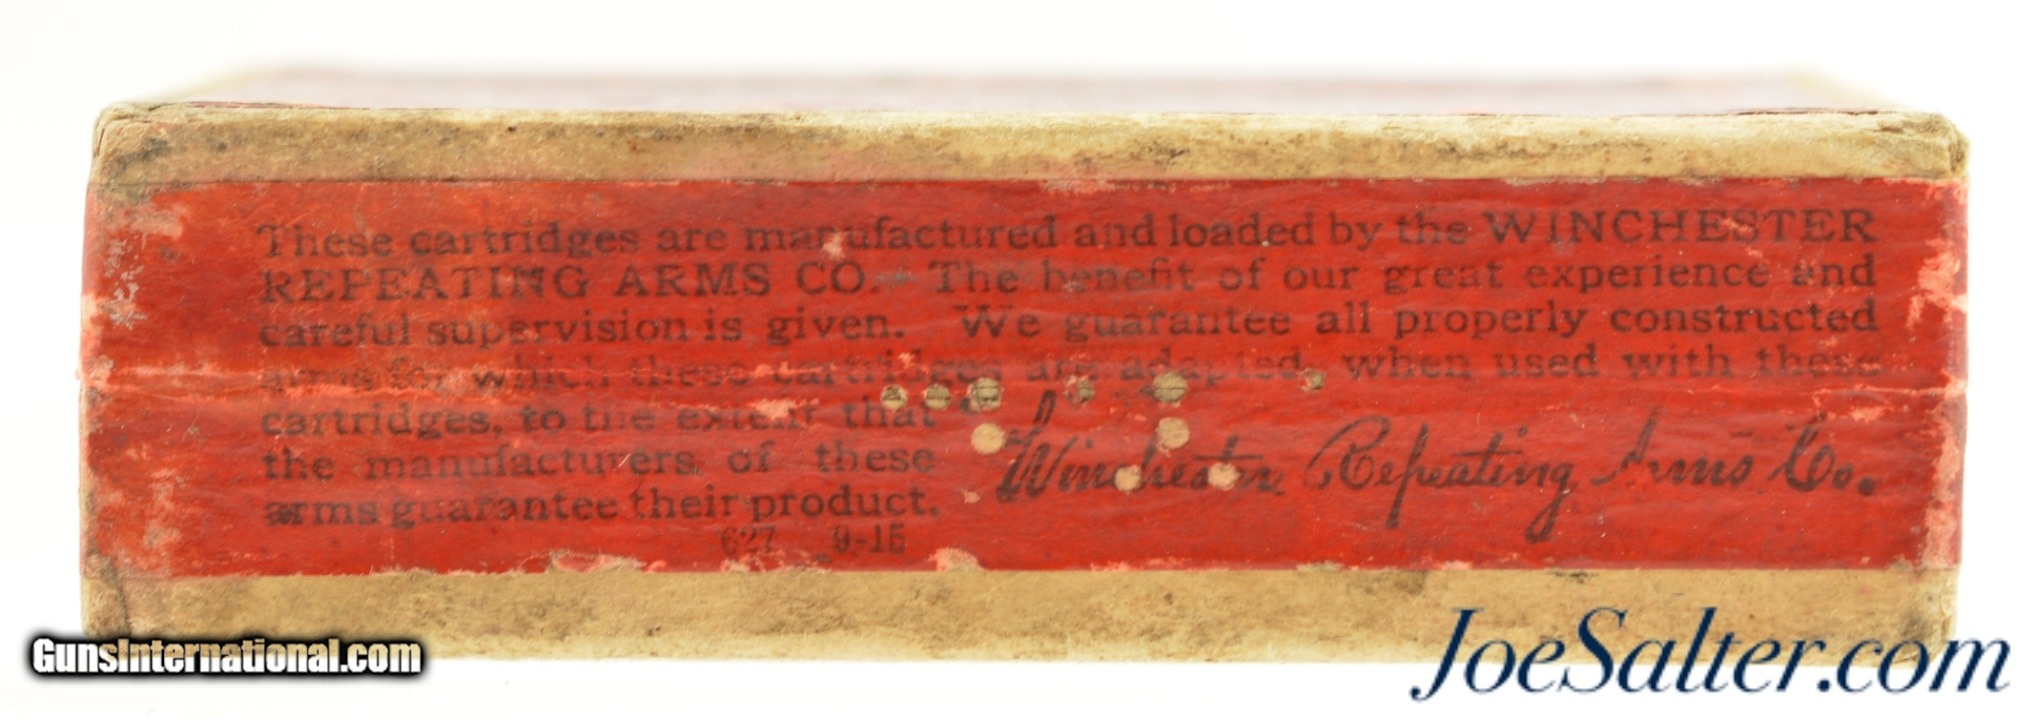 These cartridges are manufactured and loaded by the WINCHESTER
REPEATING ARMS CO. The benefit of our great experience and
careful supervision is given. We guarantee all properly constructed
arms for which these cartridges are adapted, when used with these
cartridges, to the extent that
the manufacturers of these
arms guarantee their product.
Winchester Repeating Arms Co.
627 9-15
GunsInternational.com
JoeSalter.com